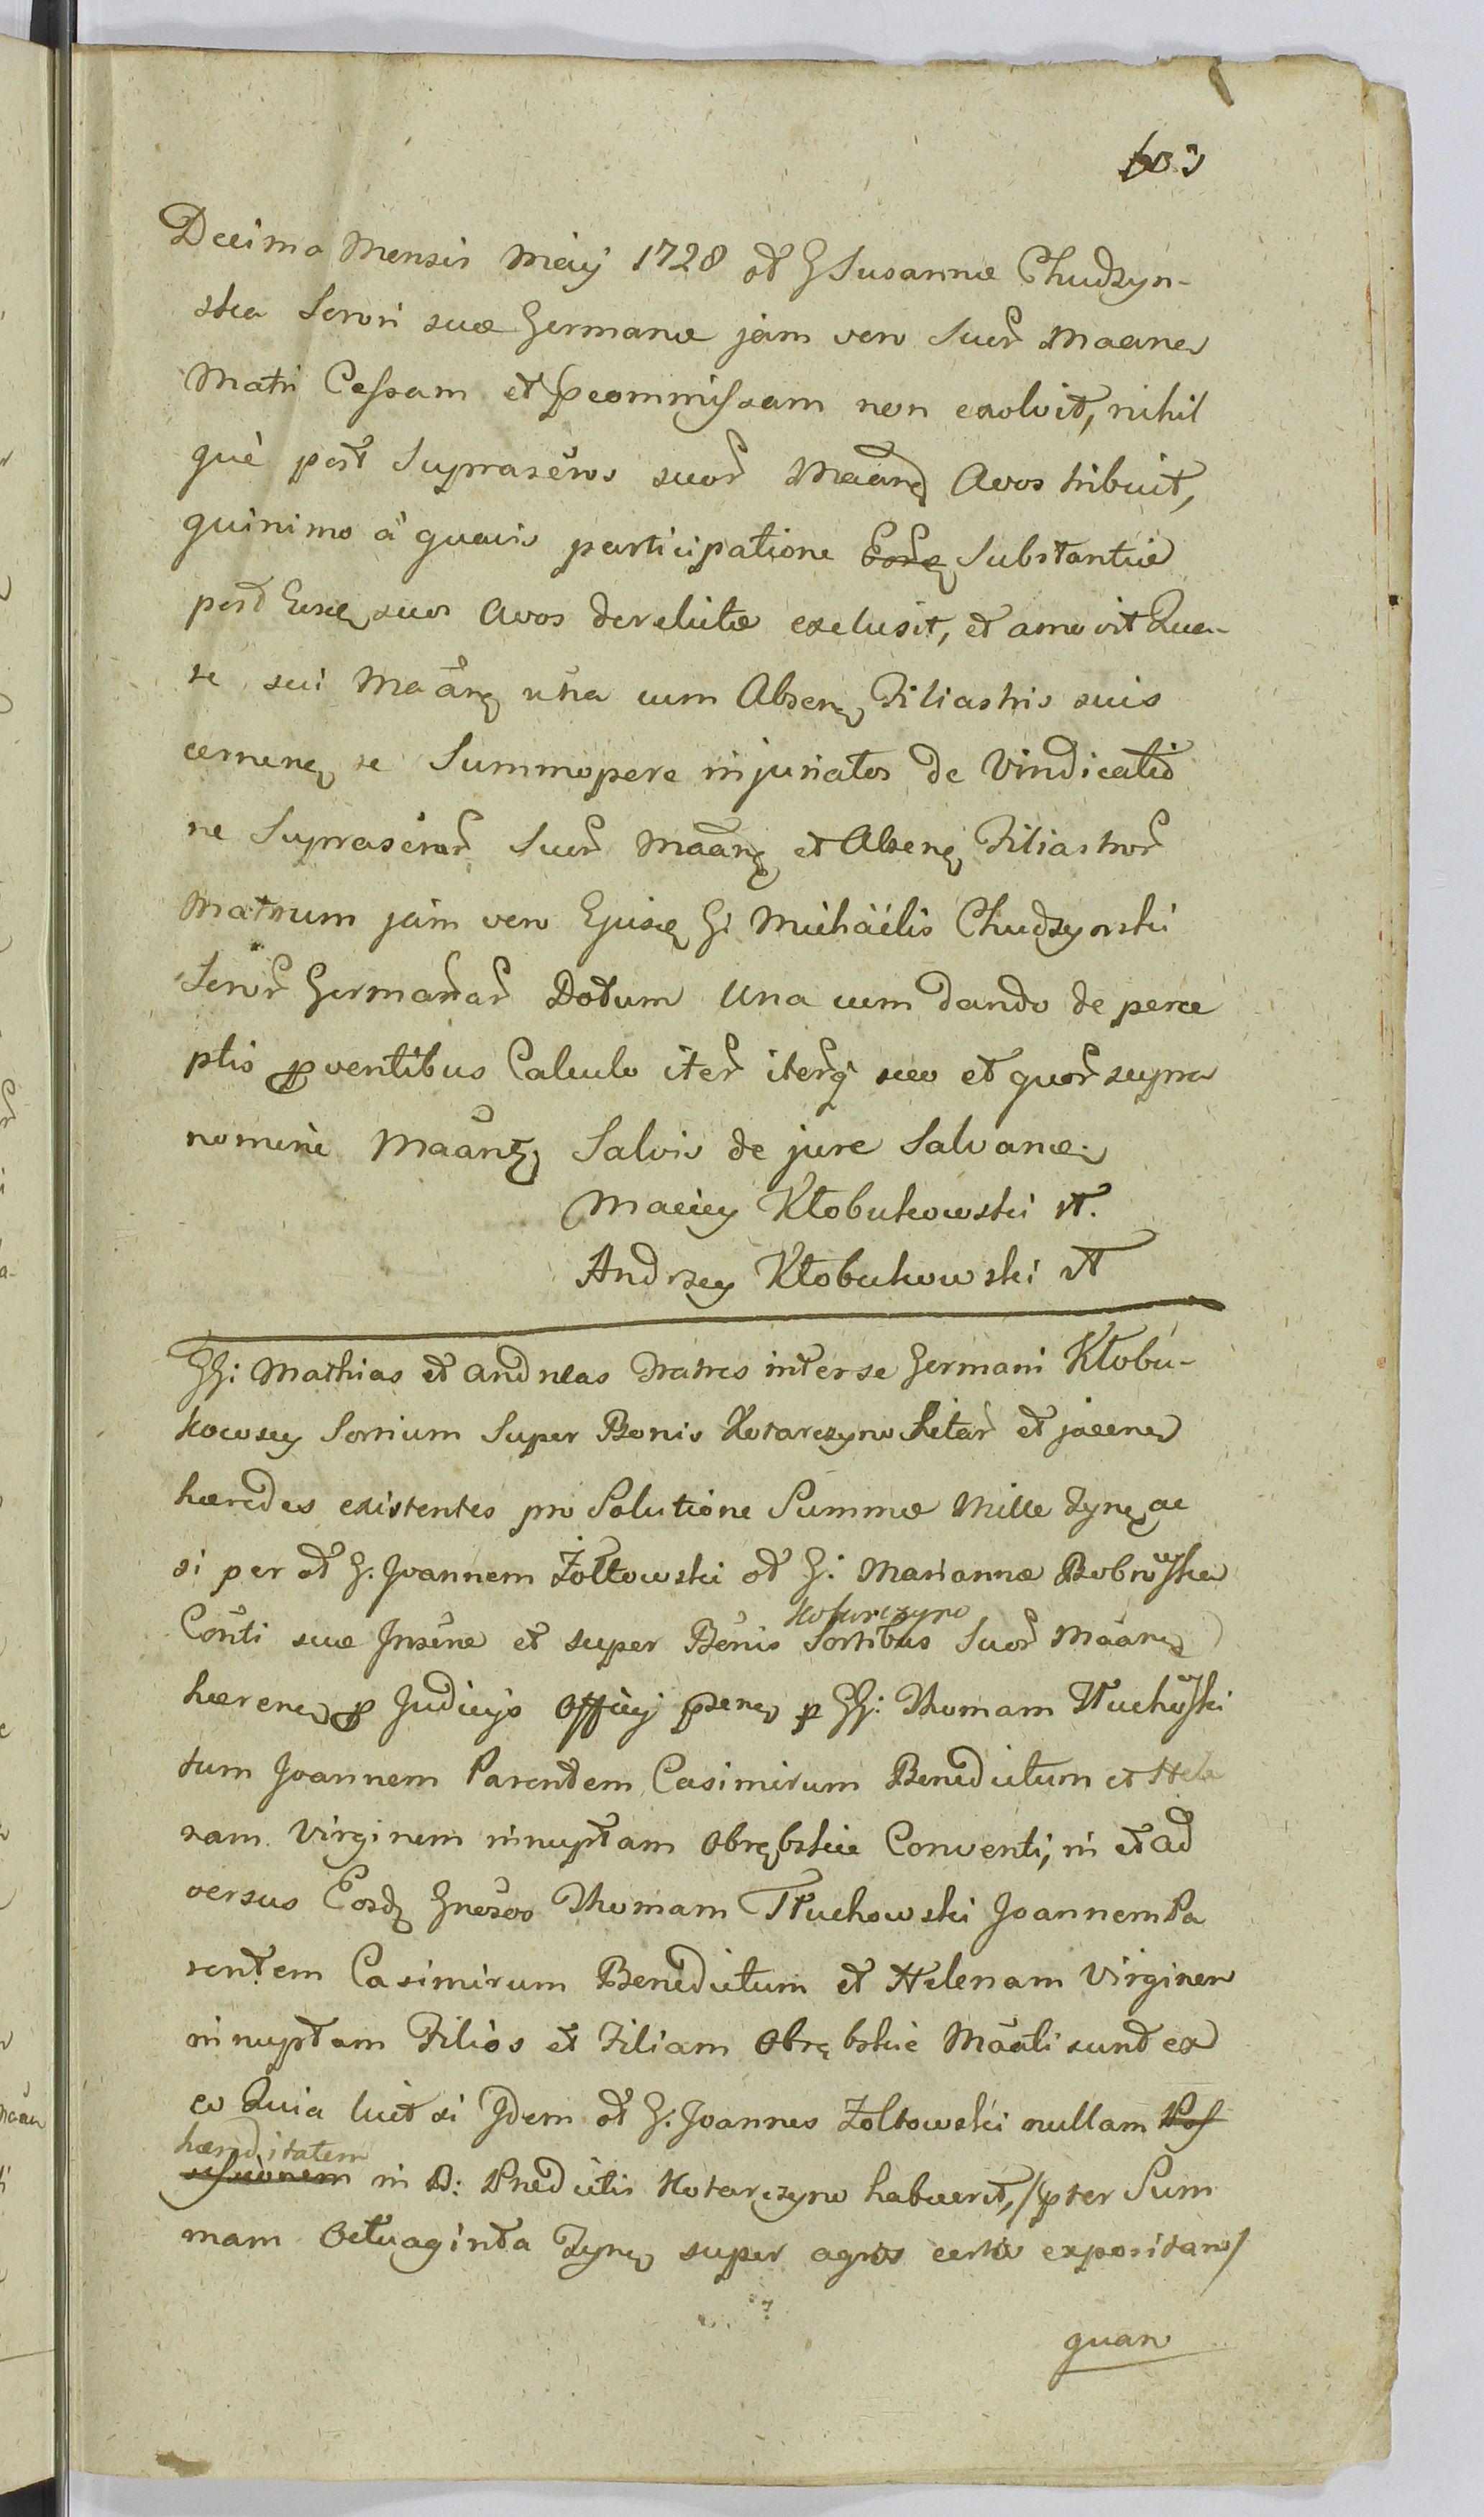 Decima Mensis Maij 1728 ol G Susannæ Chudzyn-
ska Sorori suæ Germanæ jam vero Suor Maane
Matri Cessam et pcommissam non exolvit, nihil
què post Suprascros suor Maane Avos tribuit,
quinimo à quavis participatione Substantiæ
post Eosd suos Avos derelictæ exclusit, et amovit Qua-
re sui Maane una cum Absen Filiastris suis
cernen se Summopere injuriatos de Vindicatio
ne Suprascrar Suor Maane et Absen Filiastror
Matrum jam vero Ejusd G: Michaëlis Chudzynski
Soror Germanar Dotum Una cum dando de perce
ptis pventibus Calculo iter iterq suo et quor supra
nomine Maane Salvis de jure Salvan
Maciey Kłobukowski
Andrzey Kłobukowski
GG: Mathias et Andreas Fratres inter se Germani Kłobu-
kowscy Sortium Super Bonis Kotarczyno Sitar et jacen
hæredes existentes pro Solutione Summæ Mille Fyne ac
si per ol G. Joannem Żołtowski ol G: Mariannæ Bobrowska
Conti suæ Inscræ et super Bonis Kotarczyno Sortibus Suor Maane
hæren p Judicijs Officij psen p GG: Thomam Tłuchowski
tum Joannem Parentem Casimirum Benedictum et Hele
nam Virginem innuptam Obrębskie Conventi, in et ad
versus Eosd Gnesos Thomam Tłuchowski Joannem Pa
rentem Casimirum Benedictum et Helenam Virginem
innuptam Filios et Filiam Obrębskie Maati sunt ex
eo Quia licet si Idem ol G. Joannes Żołtowski nullam Pos
hæreditatem
sessionem in B: Prædictis Kotarczyno habuerit, /pter Sum
mam Octuaginta Fyne super agris certis expositam/
quam